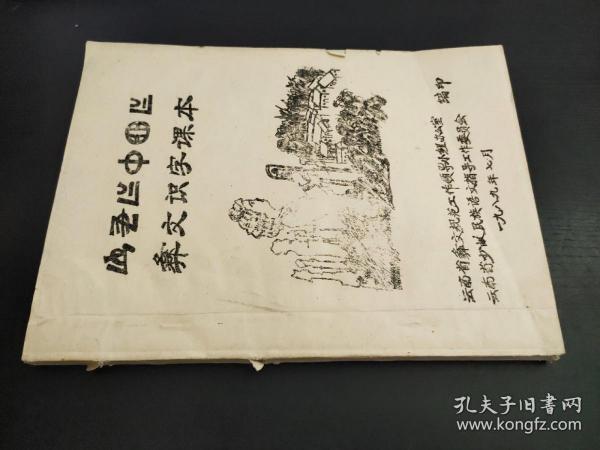 彝文识字课本
云南省彝文规范工作领导小组办公室 编印
云南省少数民族语文指导工作委员会
一九八九年七月
孔夫子旧书网
www.kongfz.com